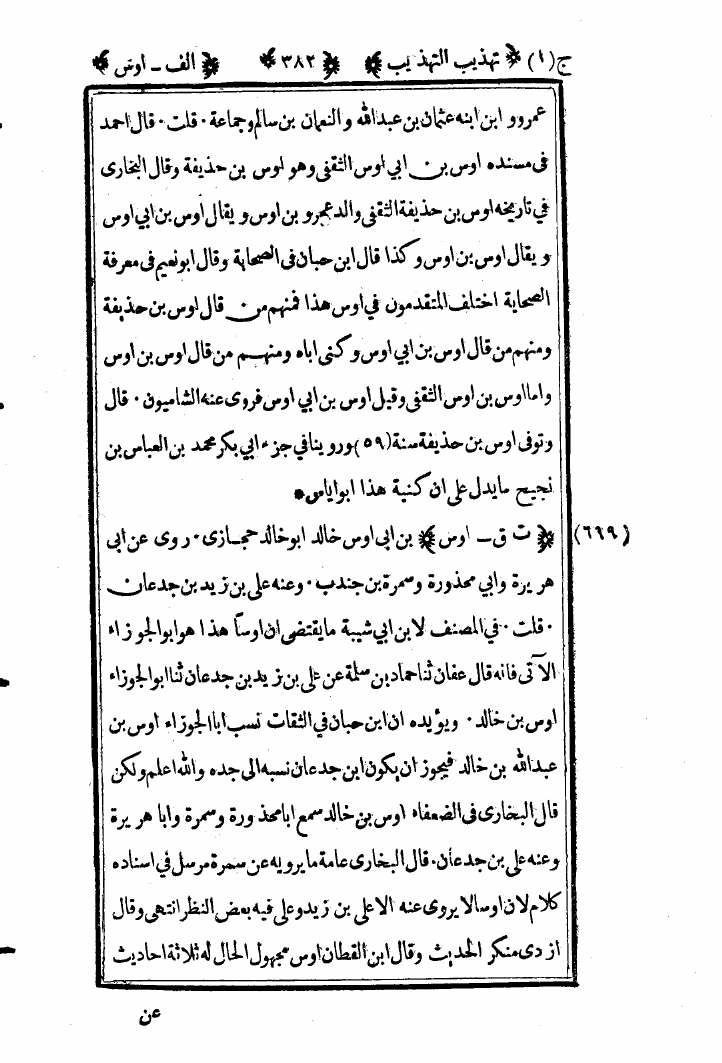 ج(١) ﴿ تهذيب التهذيب ﴾ ﴿ ٣٨٢ ﴾ ﴿ الف ـ اوس ﴾
عمرو و ابن ابنه عثمان بن عبدالله و النعمان بن سالم وجماعة ٠ قلت ٠ قال احمد
فى مسنده اوس بن ابي اوس الثقفى وهو اوس بن حذيفة وقال البخارى
في تاريخه اوس بن حذيفة الثقفى والد عمرو بن اوس و يقال اوس بن ابي اوس
و يقال اوس بن اوس وكذا قال ابن حبان فى الصحابة وقال ابونعيم فى معرفة
الصحابة اختلف المتقدمون في اوس هذا فمنهم من قال اوس بن حذيفة
ومنهم من قال اوس بن ابي اوس وكنى اباه ومنهم من قال اوس بن اوس
واما اوس بن اوس الثقفى وقيل اوس بن ابي اوس فروى عنه الشاميون ٠ قال
وتوفى اوس بن حذيفة سنة (٥٩) وروينا في جزء ابي بكر محمد بن العباس بن
نجيح مايدل على ان كنية هذا ابواياس *
(٦٦٩) ﴿ ت ق ـ اوس ﴾ بن ابى اوس خالد ابوخالد حجازى ٠ روى عن ابى
هريرة وابي محذورة وسمرة بن جندب ٠ وعنه على بن زيد بن جدعان
٠ قلت ٠ في المصنف لابن ابي شيبة مايقتضى ان اوسا هذا هو ابوالجوزاء
الآتى فانه قال عفان ثنا حماد بن سلمة عن على بن زيد بن جدعان ثنا ابوالجوزاء
اوس بن خالد ٠ ويؤيده ان ابن حبان في الثقات نسب ابا الجوزاء اوس بن
عبدالله بن خالد فيجوز ان يكون ابن جدعان نسبه الى جده والله اعلم ولكن
قال البخارى فى الضعفاء اوس بن خالد سمع ابا محذورة وسمرة وابا هريرة
وعنه على بن جدعان ٠ قال البخارى عامة مايرويه عن سمرة مرسل في اسناده
كلام لان اوسا لا يروى عنه الا على بن زيد وعلى فيه بعض النظر انتهى وقال
ازدى منكر الحديث وقال ابن القطان اوس مجهول الحال له ثلاثة احاديث
عن